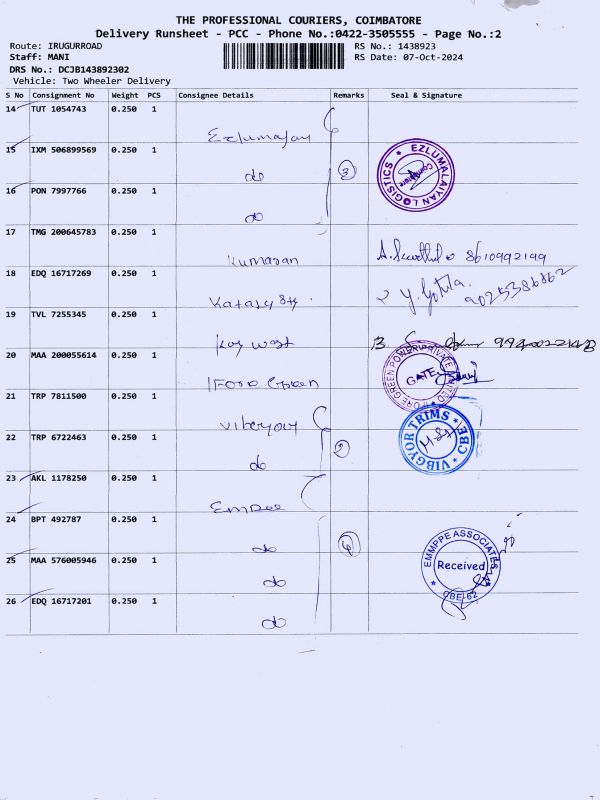 THE PROFESSIONAL COURIERS, COIMBATORE
Delivery Runsheet - PCC - Phone No.:0422-3505555 - Page No.:2
Route: IRUGURROAD
RS No.: 1438923
Staff: MANI
RS Date: 07-Oct-2024
DRS No.: DCJB143892302
Vehicle: Two Wheeler Delivery
S No Consignment No Weight PCS Consignee Details Remarks Seal & Signature
14 TUT 1054743 0.250 1
Ezlumalay
15 IXM 506899569 0.250 1
do 3
EZLUMALAIYAN LOGISTICS
Coimbatore
16 PON 7997766 0.250 1
do
17 TMG 200645783 0.250 1
Kumaran 8610992199
18 EDQ 16717269 0.250 1
Y. Gotila. 9025386862
19 TVL 7255345 0.250 1
Kay west B.
20 MAA 200055614 0.250 1
IFora Green
IFORE GREEN POWER PRIVATE LIMITED
GATE
21 TRP 7811500 0.250 1
Vibgyor
VIBGYOR TRIMS CBE
22 TRP 6722463 0.250 1
do 2
23 AKL 1178250 0.250 1
Empee
24 BPT 492787 0.250 1
do 4
EMMPPE ASSOCIATES
Received
CBE-62
25 MAA 576005946 0.250 1
do
26 EDQ 16717201 0.250 1
do